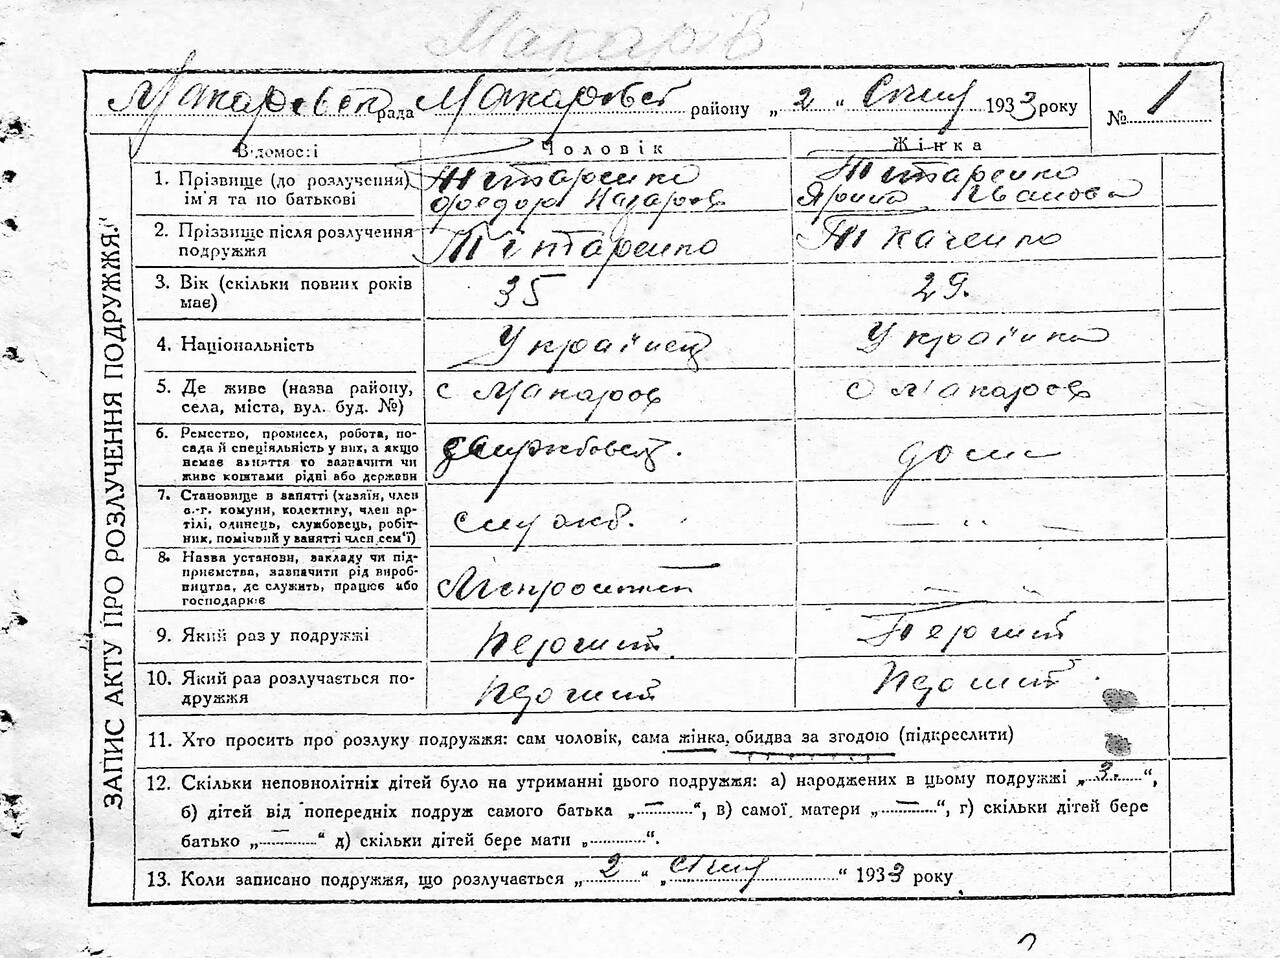 Макарів
1
Макарівськ рада Макарівськ району „ 2 “ Січня 1933 року № 1
Відомості Чоловік Жінка
1. Прізвище (до розлучення) ім'я та по батькові
Титаренко
Федор Назаров
Титаренко
Ярина Иванова
2. Прізвище після розлучення подружжя
Титаренко
Ткаченко
3. Вік (скільки повних років має)
35
29.
4. Національність
Українец
Українка
5. Де живе (назва району, села, міста, вул. буд. №)
с Макаров
с Макаров
6. Ремество, промисел, робота, посада й спеціяльність у них, а якщо немає заняття то зазначити чи живе коштами рідні або держави
службовец.
дома
7. Становище в занятті (хазяїн, член с.-г. комуни, колективу, член артілі, одинець, службовець, робітник, помічний у занятті член сем'ї)
служб.
— „ —
8. Назва установи, закладу чи підприємства, зазначити рід виробництва, де служить, працює або господарює
9. Який раз у подружжі
Первий
Первий
10. Який раз розлучається подружжя
Первий
Первий
11. Хто просить про розлуку подружжя: сам чоловік, сама жінка, обидва за згодою (підкреслити)
12. Скільки неповнолітніх дітей було на утриманні цього подружжя: а) народжених в цьому подружжі „ 3. “,
б) дітей від попередніх подруж самого батька „ — “, в) самої матери „ — “, г) скільки дітей бере
батько „ — “ д) скільки дітей бере мати „ “.
13. Коли записано подружжя, що розлучається „ 2 “ „ січня “ 1933 року
ЗАПИС АКТУ ПРО РОЗЛУЧЕННЯ ПОДРУЖЖЯ.